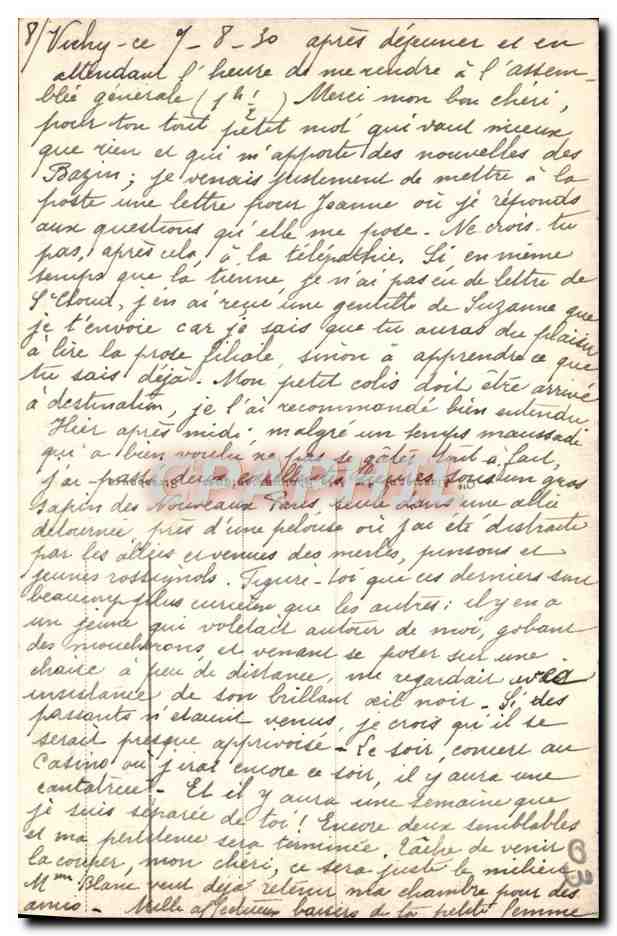 8/ Vichy - ce 7-8-30 après déjeuner et en
attendant l'heure de me rendre à l'assem-
blée générale ( ) Merci mon bon chéri,
pour ton tout petit mot qui vaut mieux
que rien et qui m'apporte des nouvelles des
Bazin ; je venais justement de mettre à la
poste une lettre pour Jeanne où je réponds
aux questions qu'elle me pose - Ne crois-tu
pas, après cela, à la télépathie. Si en même
temps que la tienne, je n'ai pas eu de lettre de
St Cloud, j'en ai reçu une gentille de Suzanne que
je t'envoie car je sais que tu auras du plaisir
à lire la prose filiale, sinon à apprendre ce que
tu sais déjà - Mon petit colis doit être arrivé
à destination, je l'ai recommandé bien entendu
Hier après midi, malgré un temps maussade
qui a bien voulu ne pas se gâter tout à fait,
j'ai passé des heures sous un gros
sapin des Nouveaux Parcs, seule dans une allée
détournée, près d'une pelouse où j'ai été distraite
par les allées et venues des merles, pinsons et
jeunes rossignols. Figure-toi que ces derniers sont
beaucoup plus curieux que les autres : il y en a
un jeune qui voletait autour de moi, gobant
des moucherons et venant se poser sur une
chaise à peu de distance, me regardait avec
insistance de son brillant œil noir - Si des
passants n'étaient venus, je crois qu'il se
serait presque apprivoisé - Le soir, concert au
Casino où j'irai encore ce soir, il y aura une
cantatrice - Et il y aura une semaine que
je suis séparée de toi ! Encore deux semblables
et ma pénitence sera terminée. Tâche de venir
la couper, mon chéri, ce sera juste le milieu
Mme Blanc veut déjà retenir ma chambre pour des
amis - Mille affectueux baisers de ta petite femme
CPARAMA